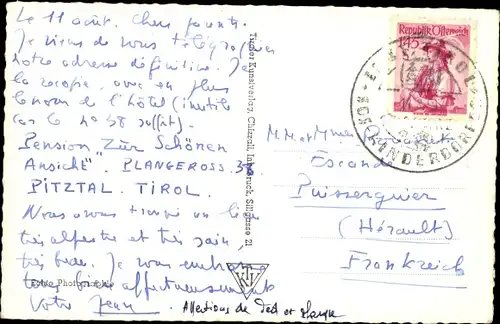 Le 11 août. Chers parents.
Je viens de vous télégraphier
notre adresse définitive. Je
la recopie, avec en plus
le nom de l'hôtel (inutile
car le nº 38 suffit).
Pension "Zur Schönen
Ansicht". PLANGEROSS. 38
PITZTAL. TIROL.
Nous avons trouvé un lieu
très alpestre et très sain,
très beau. Je vous embrasse
très affectueusement
Votre Jean
Affections de
Echte Photographie
Tiroler Kunstverlag Chizzali, Innsbruck, Sillgasse 21
TKV
Republik Österreich
1.45
M.M et Mme
Escande
Puisserguier
(Hérault)
Frankreich